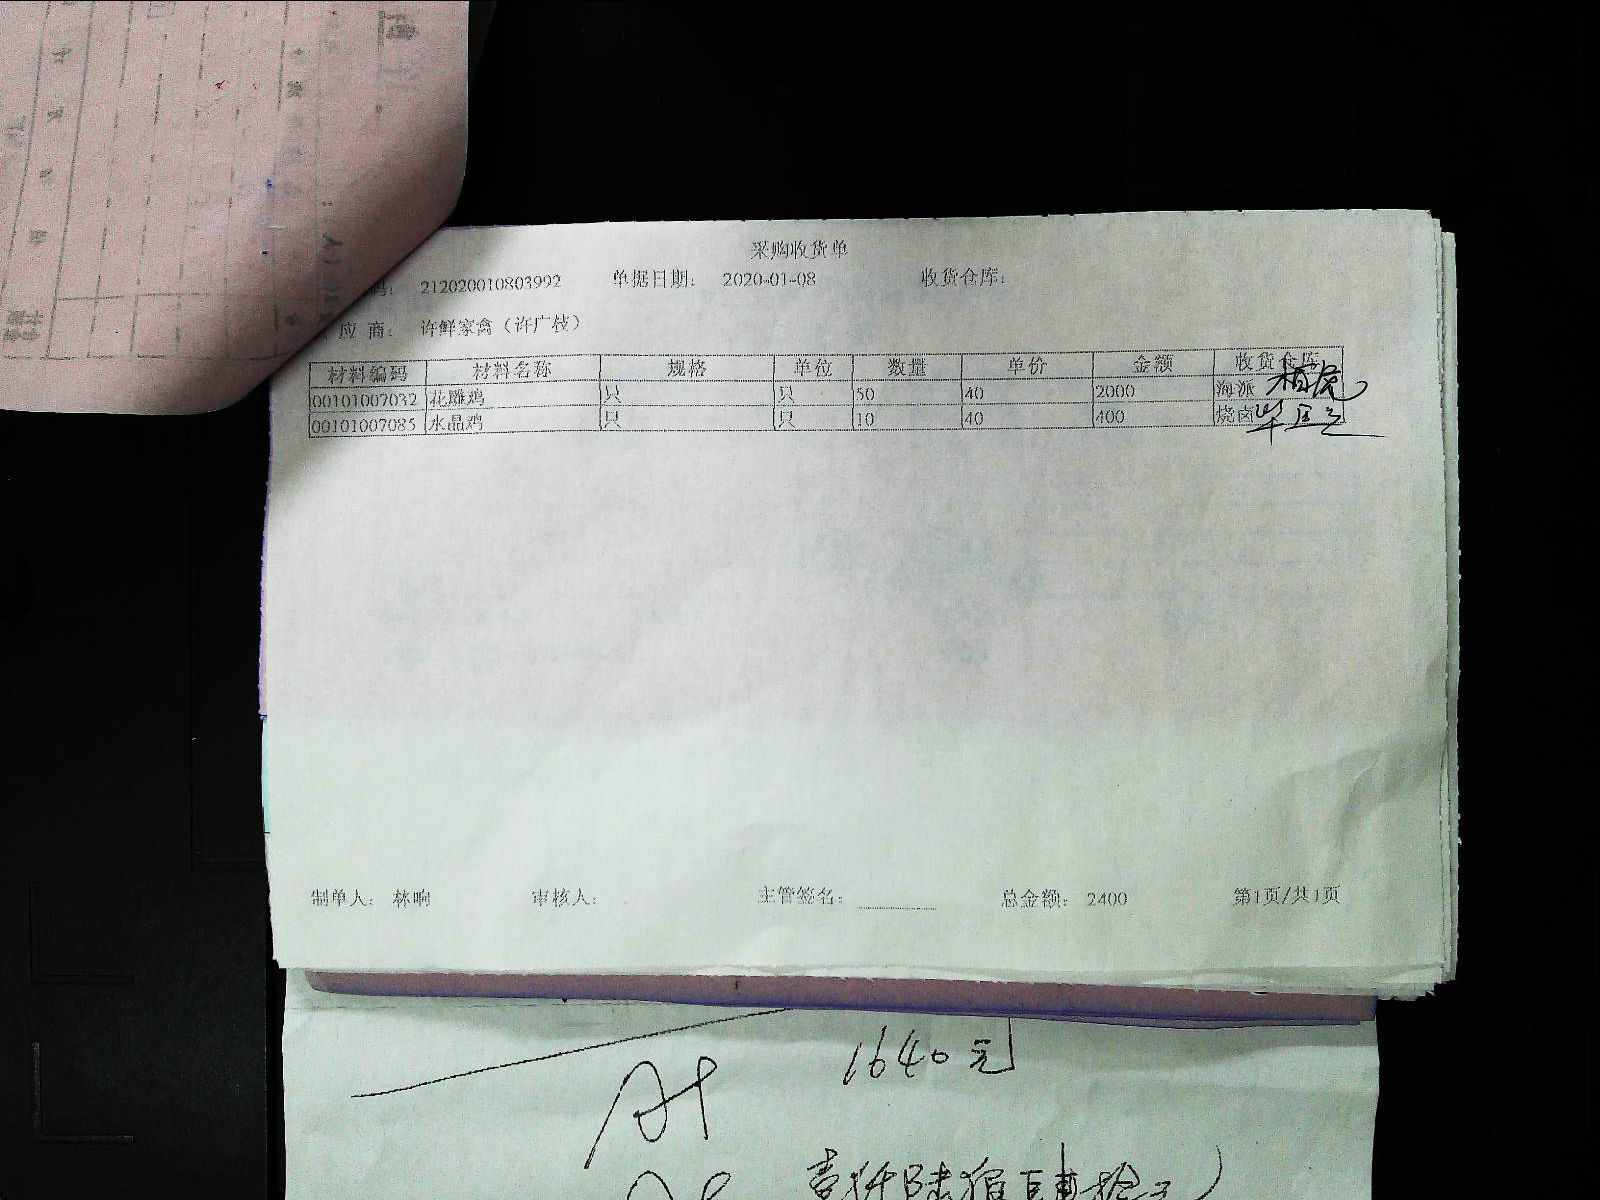 采购收货单
码： 212020010803992 单据日期： 2020-01-08 收货仓库：
应 商： 许鲜家禽（许广枝）
材料编码 材料名称 规格 单位 数量 单价 金额 收货仓库
00101007032 花雕鸡 只 只 50 40 2000 海派
00101007085 水晶鸡 只 只 10 40 400 烧卤
制单人： 林响 审核人： 主管签名： 总金额： 2400 第1页/共1页
1640元